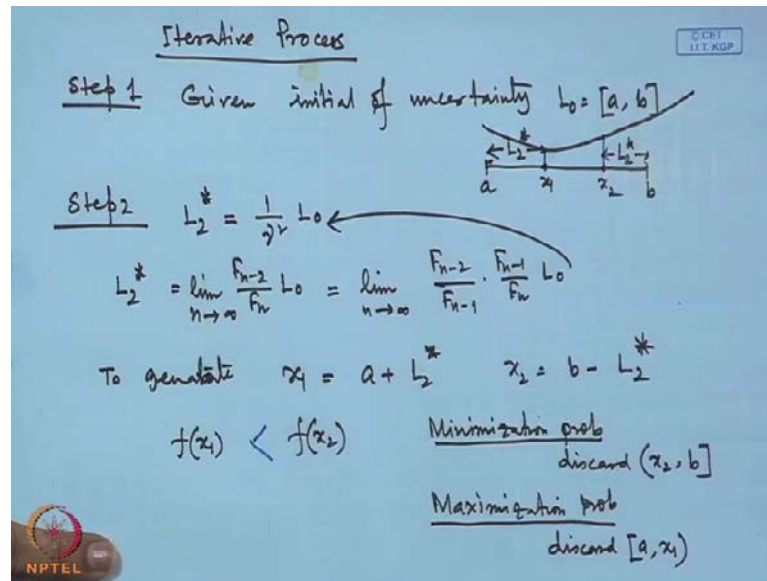 Iterative Process
© CET
I.I.T. KGP
Step 1 Given initial of uncertainty L₀ = [a, b]
← L₂* → ← L₂* →
a x₁ x₂ b
Step 2 L₂* = 1/γ² L₀
L₂* = lim n→∞ Fn-2/Fn L₀ = lim n→∞ Fn-2/Fn-1 · Fn-1/Fn L₀
To x₁ = a + L₂* x₂ = b - L₂*
f(x₁) < f(x₂) Minimization prob
discard (x₂, b]
Maximization prob
discard [a, x₁)
NPTEL